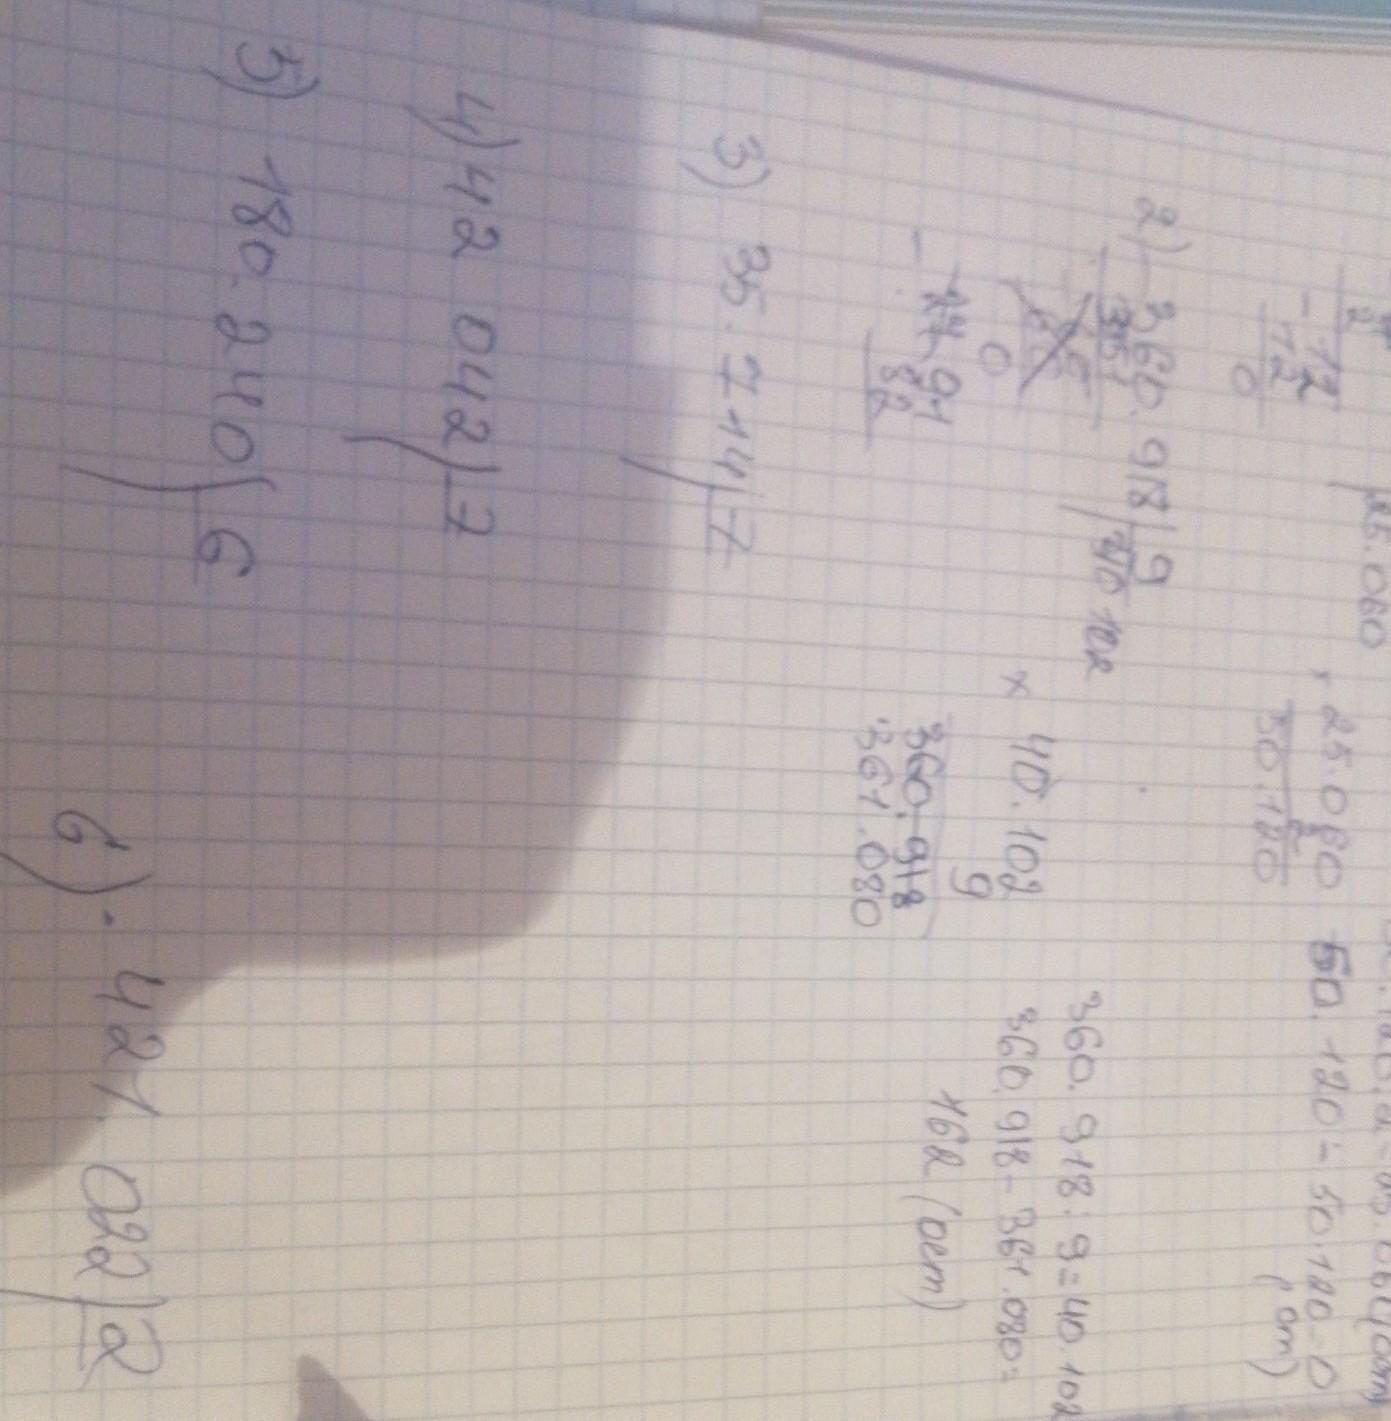 25.060
12
- 12
0
× 25.060
2
50.120
50.120 - 50.120 = 0
2) 360.918 | 9
40 102
0
91
82
× 40.102
9
360.918
361.080
360.918 : 9 = 40.102
360.918 - 361.080 =
162 (ост)
3) 35.714 | 7
4) 42 042 | 7
5) 180.240 | 6
6) 421.022 | 2